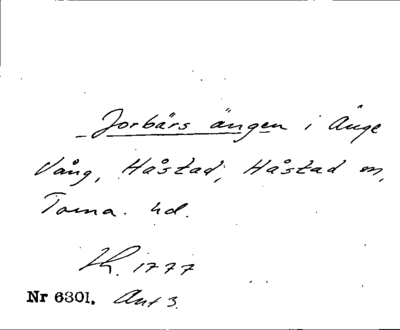 Jorbärs ängen i Änge
Vång, Håstad, Håstad sn,
Torna. hd.
Lh. 1777
Nr 6301. Akt 3.